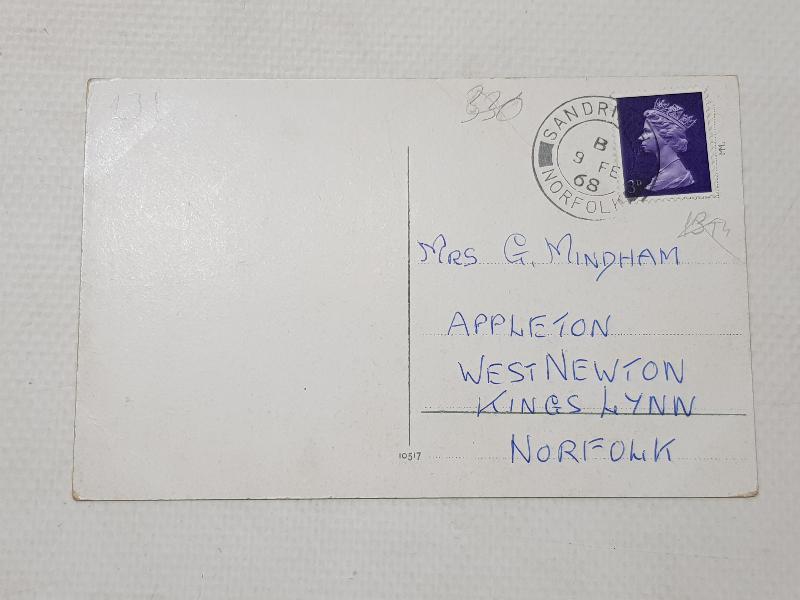 330
SANDRI
B
9 FE
68
NORFOLK
3D
MRS G. MINDHAM
APPLETON
WEST NEWTON
KINGS LYNN
NORFOLK
10517